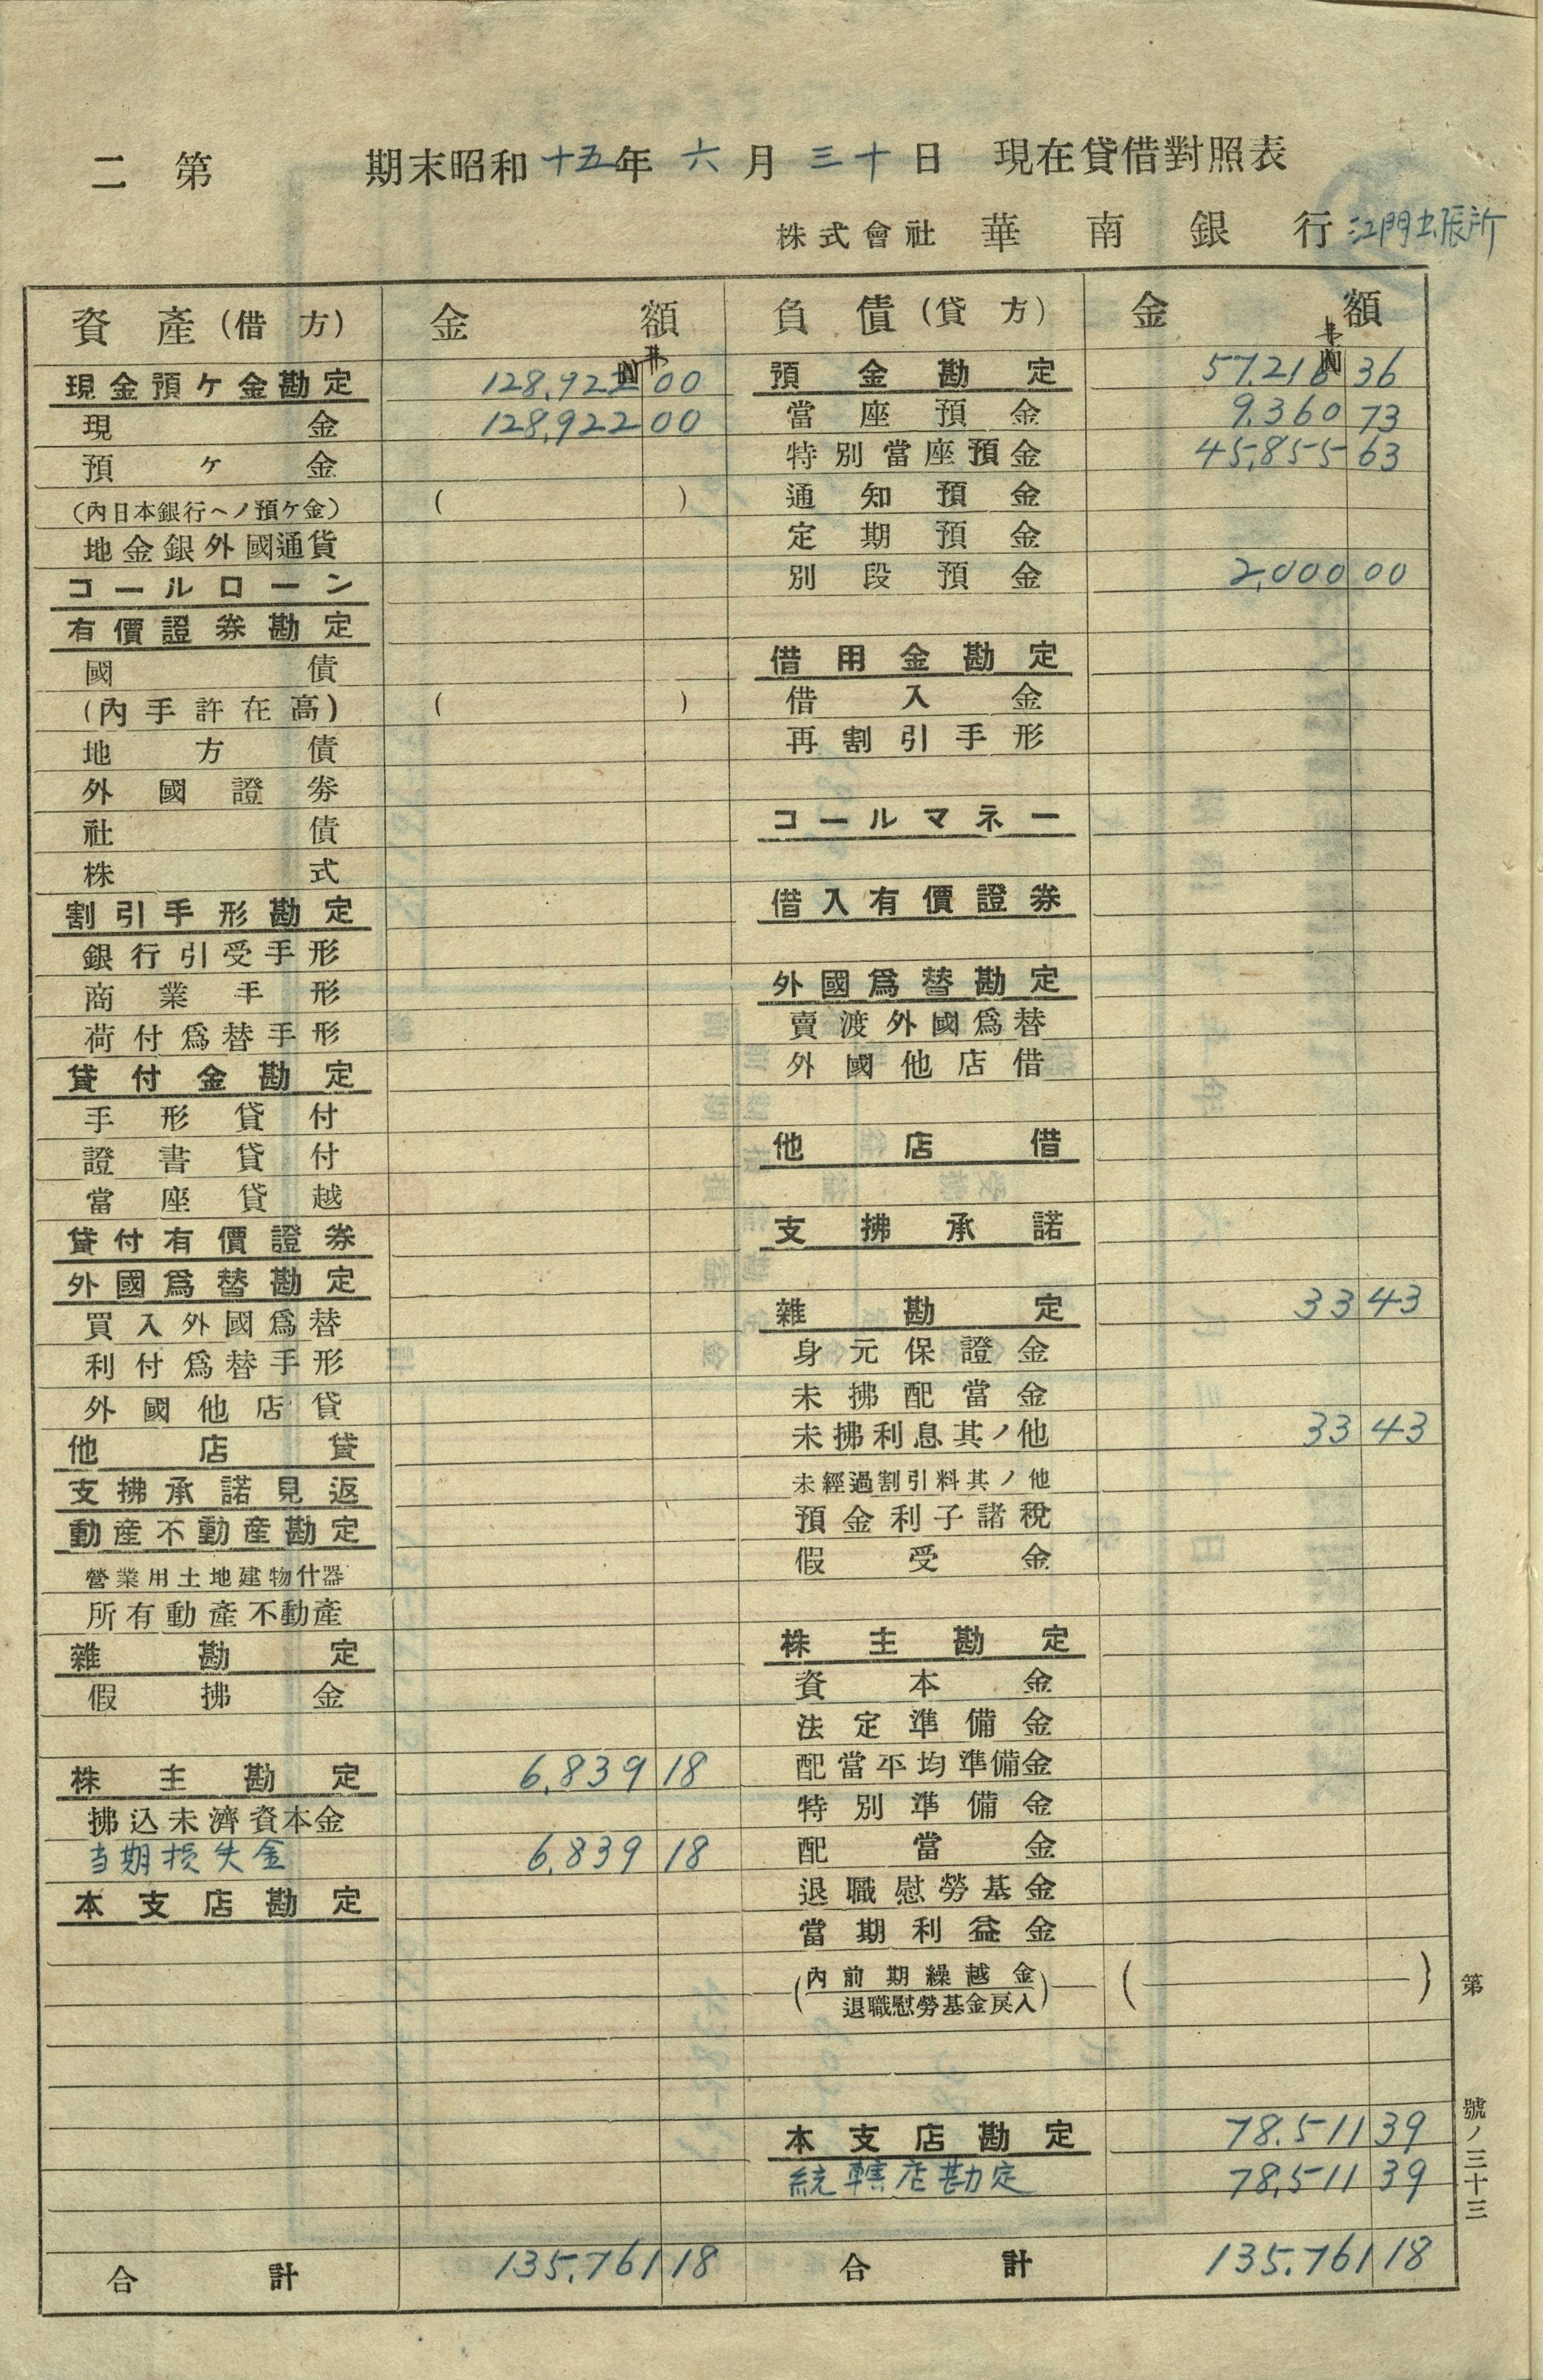 二 第 期末昭和十五年六月三十日 現在貸借對照表
株式會社 華南銀行 江門出張所
資產(借方) 金額 負債(貸方) 金額
現金預ケ金勘定 128,922 00
現金 128,922 00
預ケ金
(內日本銀行ヘノ預ケ金) ( )
地金銀外國通貨
コールローン
有價證券勘定
國債
(內手許在高) ( )
地方債
外國證券
社債
株式
割引手形勘定
銀行引受手形
商業手形
荷付爲替手形
貸付金勘定
手形貸付
證書貸付
當座貸越
貸付有價證券
外國爲替勘定
買入外國爲替
利付爲替手形
外國他店貸
他店貸
支拂承諾見返
動產不動產勘定
營業用土地建物什器
所有動產不動產
雜勘定
假拂金
株主勘定 6,839 18
拂込未濟資本金
当期損失金 6,839 18
本支店勘定
合計 135,761 18
預金勘定 57,216 36
當座預金 9,360 73
特別當座預金 45,855 63
通知預金
定期預金
別段預金 2,000 00
借用金勘定
借入金
再割引手形
コールマネー
借入有價證券
外國爲替勘定
賣渡外國爲替
外國他店借
他店借
支拂承諾
雜勘定 33 43
身元保證金
未拂配當金
未拂利息其ノ他 33 43
未經過割引料其ノ他
預金利子諸稅
假受金
株主勘定
資本金
法定準備金
配當平均準備金
特別準備金
配當金
退職慰勞基金
當期利益金
(內前期繰越金
退職慰勞基金戾入) ( )
本支店勘定 78,511 39
統轄店勘定 78,511 39
合計 135,761 18
第 號ノ三十三